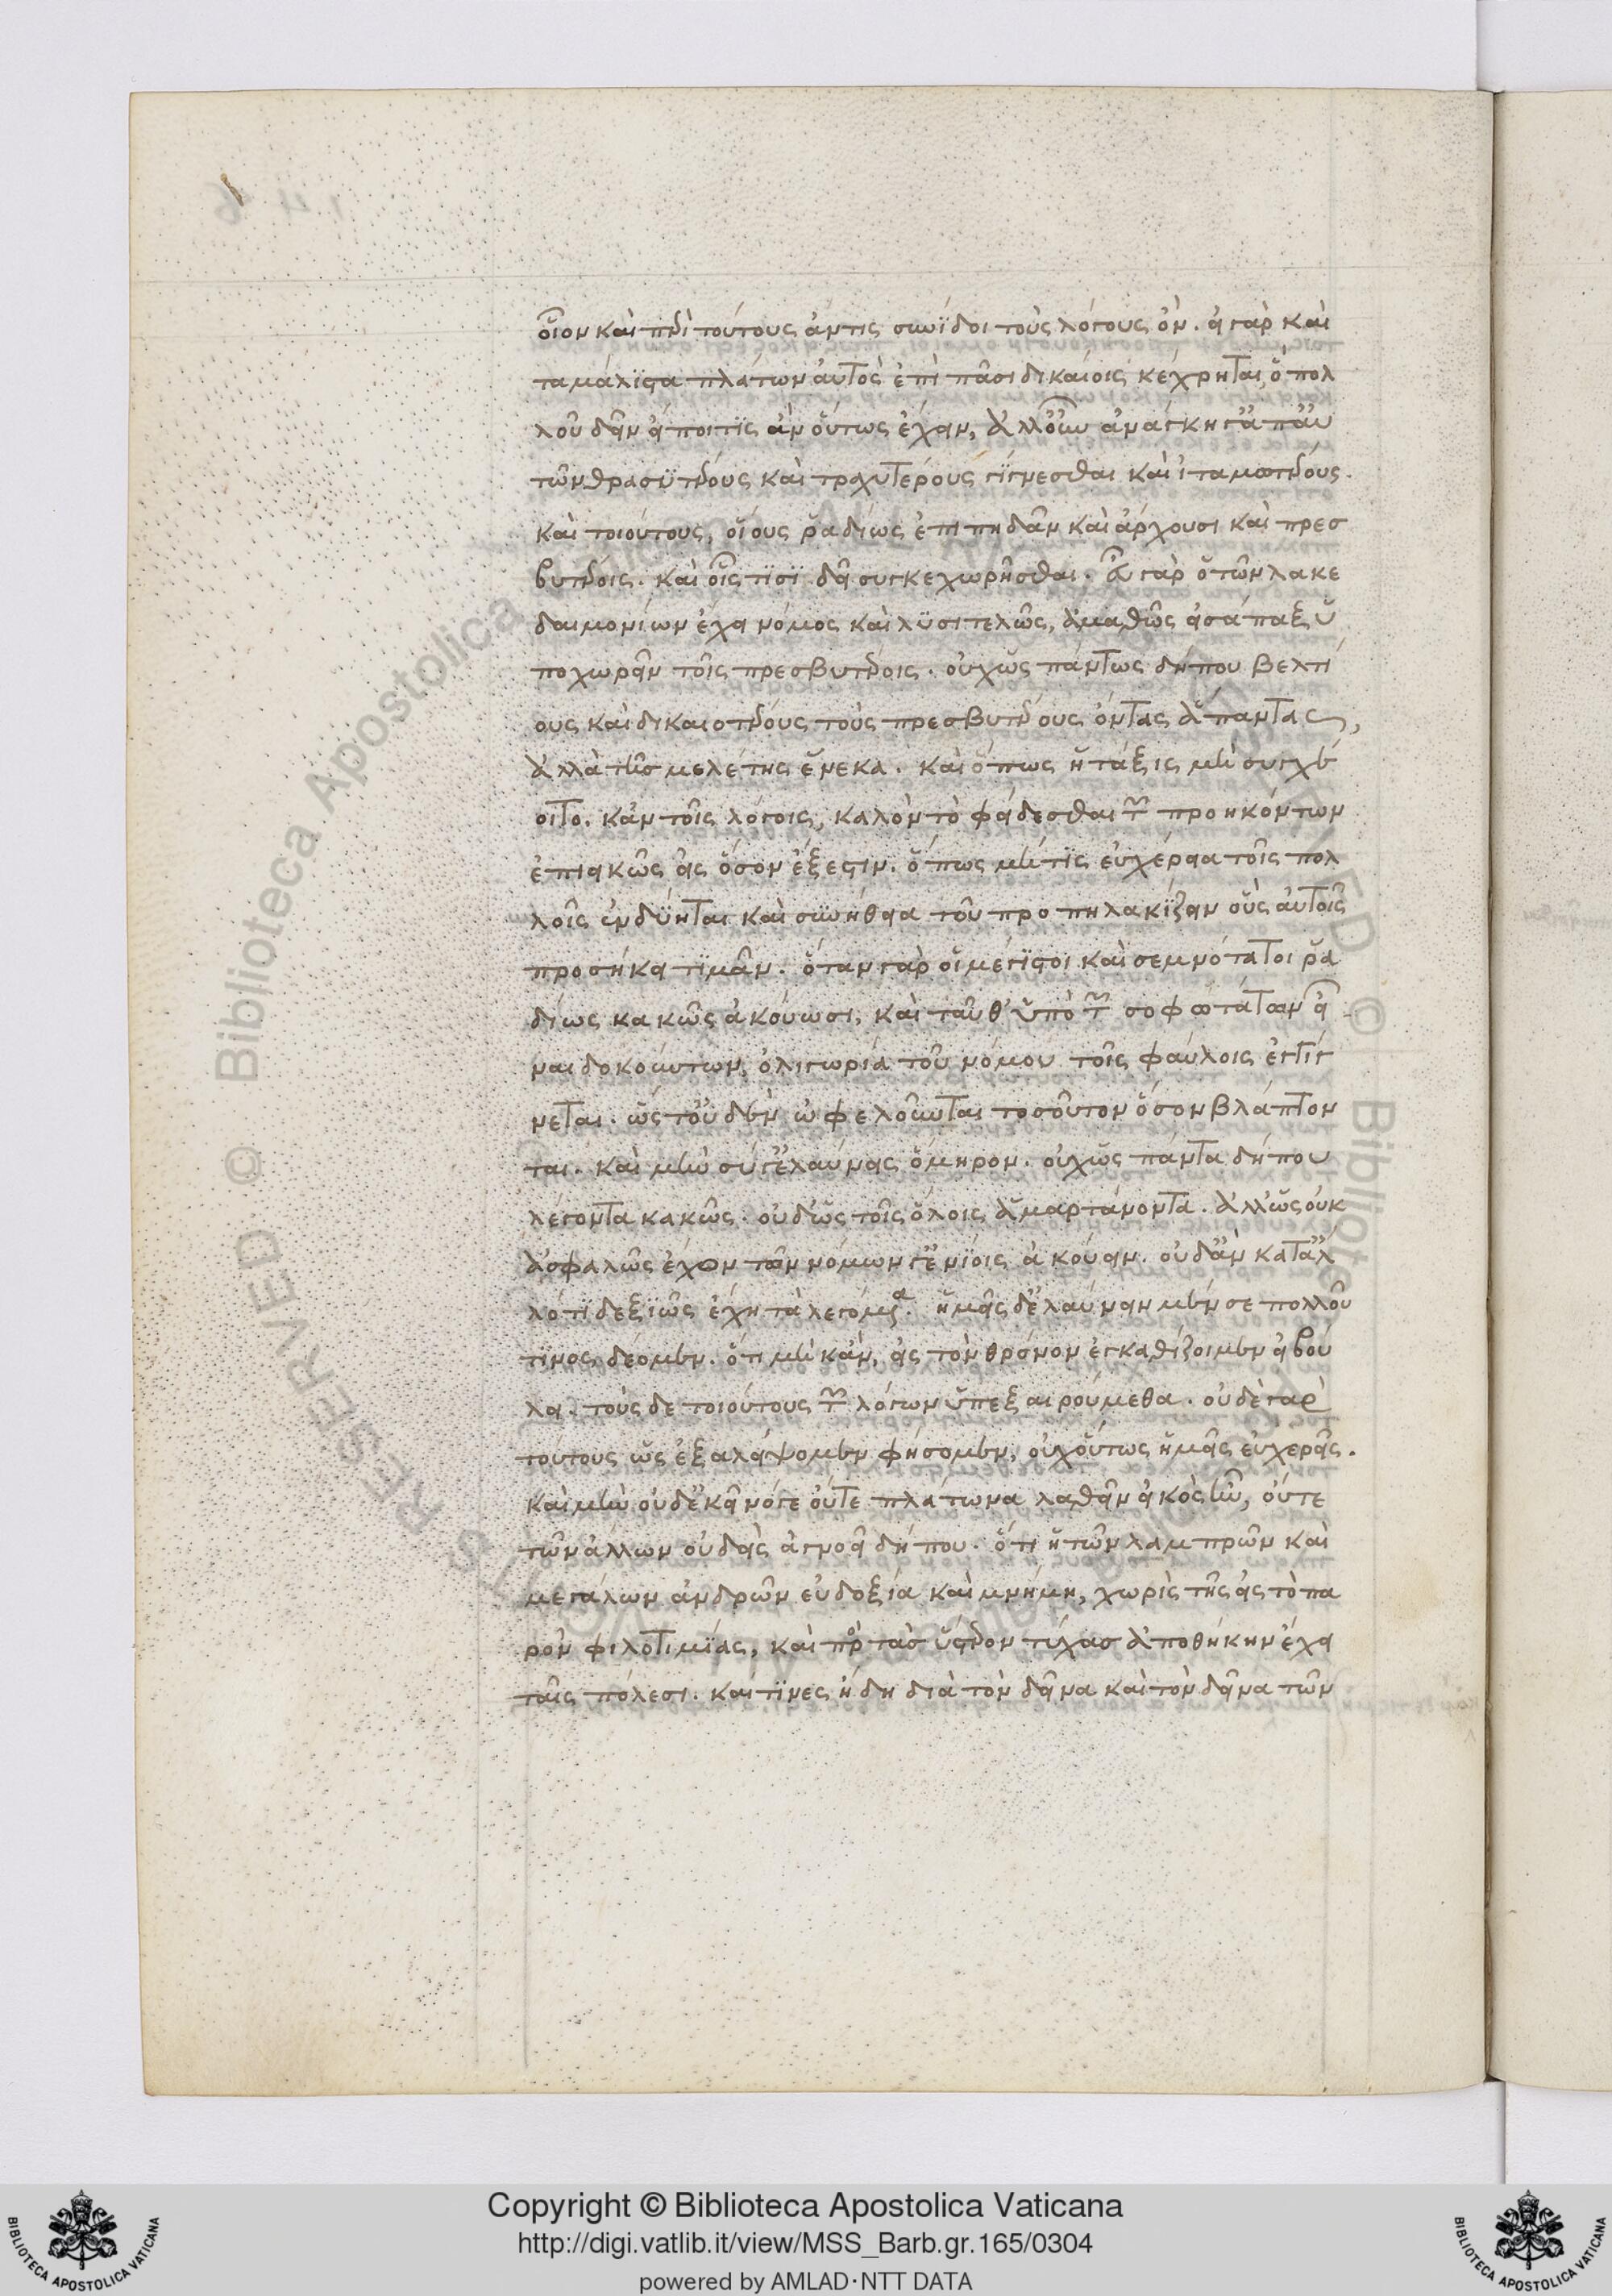 οἷον καὶ περὶ τούτους ἄν τις συνίδοι τοὺς λόγους ὄν. εἰ γὰρ καὶ
τα μάλιστα πλάτων αὐτὸς ἐπὶ πᾶσι δικαίοις κέχρηται, ὃ πολ
λοῦ δεῖν εἴποι τὶς ἂν οὕτως ἔχειν, ἀλλ' οὖν ἀνάγκη γ' ἀπ' αὐ
τῶν θρασϋτέρους καὶ τραχυτέρους γίγνεσθαι καὶ ἰταμωτέρους.
καὶ τοιούτους, οἵους ῥαδίως ἐπιπηδᾶν καὶ ἄρχουσι καὶ πρεσ
βυτέροις. καὶ οἷς τισὶ δεῖ συγκεχωρῆσθαι. εὖ γὰρ ὁ τῶν λακε
δαιμονίων ἔχει νόμος καὶ λυσιτελῶς, ἀμαθῶς εἰσάπαξ ὑ
ποχωρεῖν τοῖς πρεσβυτέροις. οὐχ ὡς πάντως δήπου βελτί
ους καὶ δικαιοτέρους τοὺς πρεσβυτέρους ὄντας ἅπαντας,
ἀλλὰ τῆς μελέτης ἕνεκα. καὶ ὅπως ἡ τάξις μὴ συγχέ
οιτο. κἀν τοῖς λόγοις, καλὸν τὸ φείδεσθαι τῶν προηκόντων
ἐπιεικῶς εἰς ὅσον ἔξεστιν. ὅπως μή τις εὐχέρεια τοῖς πολ
λοῖς ἐνδύηται καὶ συνήθεια τοῦ προπηλακίζειν οὓς αὐτοῖς
προσήκει τιμᾶν. ὅταν γὰρ οἱ μέγιστοι καὶ σεμνότατοι ῥα
δίως κακῶς ἀκούωσι, καὶ ταῦθ' ὑπὸ τῶν σοφωτάτων εἶ
ναι δοκούντων, ὀλιγωρία τοῦ νόμου τοῖς φαύλοις ἐγγίγ
νεται. ὥς τ' οὐδὲν ὠφελοῦνται τοσοῦτον ὅσον βλάπτον
ται. καὶ μὴν σύ γ' ἐλαύνεις ὅμηρον. οὐχ ὡς πάντα δήπου
λέγοντα κακῶς. οὐδ' ὡς τοῖς ὅλοις ἁμαρτάνοντα. ἀλλ' ὡς οὐκ
ἀσφαλῶς ἔχον τῶν νόμων γ' ἐνίοις ἀκούειν. οὐδ' ἂν κατ' ἄλ
λό τι δεξιῶς ἔχῃ τὰ λεγόμενα. ἡμᾶς δ' ἐλαύνειν μέν σε πολλοῦ
τινος δέομεν. ὅτι μὴ κἀν, εἰς τὸν θρόνον ἐγκαθίζοιμεν εἰ βού
λει. τοὺς δε τοιούτους τῶν λόγων ὑπεξαιρούμεθα. οὐδὲ γαρ
τουτους ὡς ἐξαλείψομεν φήσομεν, οὐχ οὕτως ἡμᾶς εὐχερεῖς.
καὶ μὴν οὐδ' ἐκεῖνό γε οὔτε πλάτωνα λαθεῖν εἰκὸς ἦν, οὔτε
τῶν ἄλλων οὐδεὶς ἀγνοεῖ δήπου. ὅτι ἡ τῶν λαμπρῶν καὶ
μεγάλων ἀνδρῶν εὐδοξία καὶ μνήμη, χωρὶς τῆς εἰς τὸ πα
ρὸν φιλοτιμίας, καὶ πρὸς τὰσ ὕστερον τύχασ ἀποθήκην ἔχει
ταῖς πόλεσι. καί τινες ἤδη διὰ τὸν δεῖνα καὶ τὸν δεῖνα τῶν
Copyright © Biblioteca Apostolica Vaticana
http://digi.vatlib.it/view/MSS_Barb.gr.165/0304
powered by AMLAD·NTT DATA